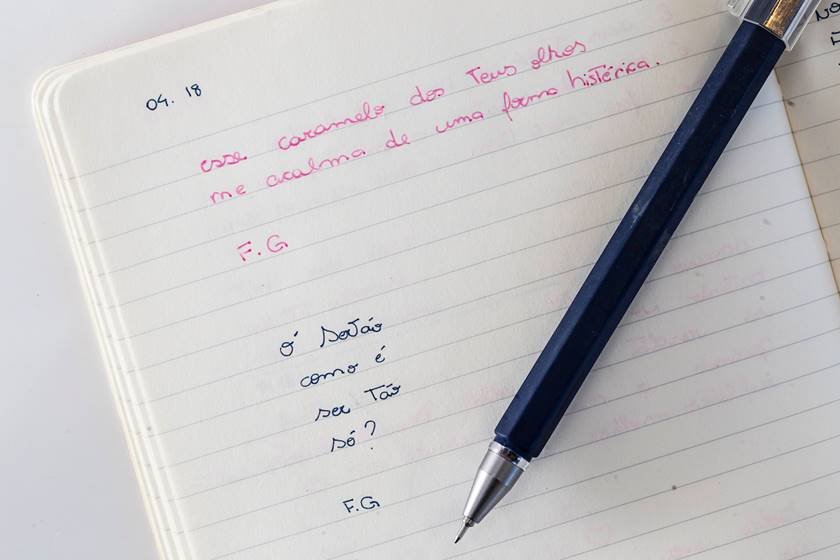 04. 18
esse caramelo dos teus olhos
me acalma de uma forma histérica.
F.G
ó sertão
como é
ser tão
só?
F.G
No